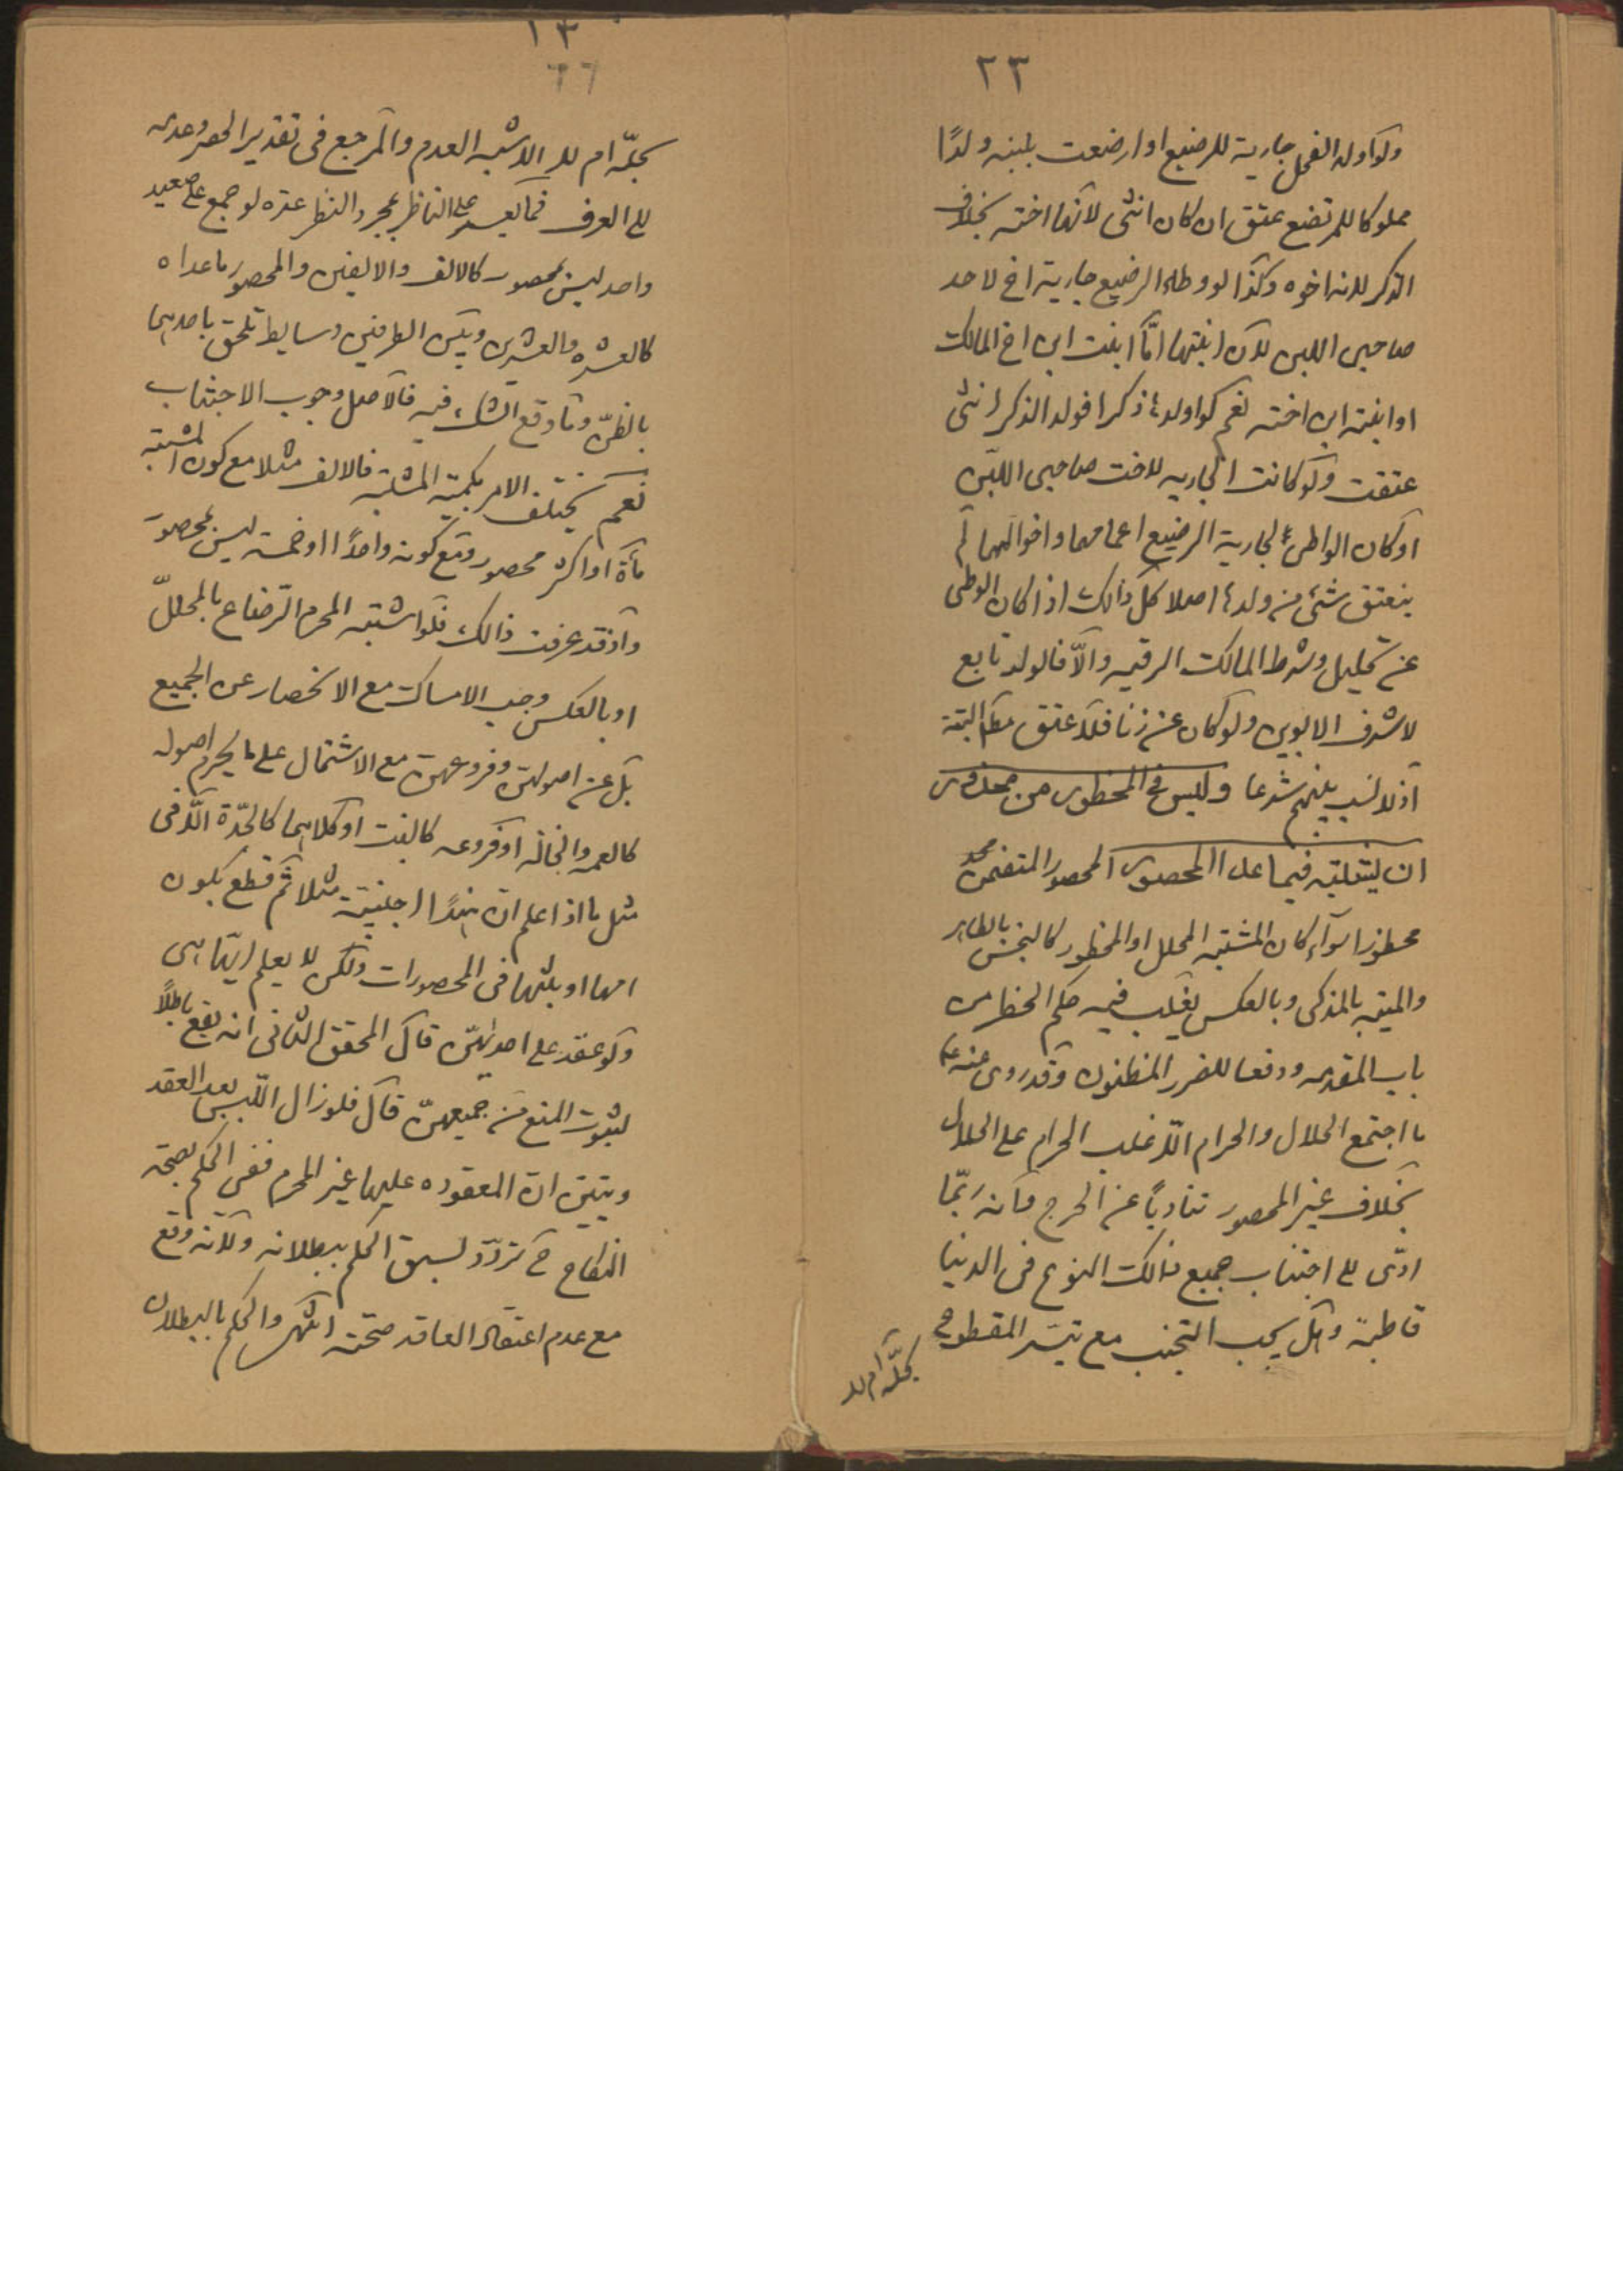 ٢٣
ولو اولد الفحل جارية للرضيع او ارضعت بلبنه ولدًا
مملوكا للمرتضع عتق ان كان انثى لانها اخته بخلاف
الذكر لانه اخوه وكذا لو وطئ الرضيع جارية اخ لاحد
صاحبى اللبن لان ابنتها امّا ابنت ابن اخ المالك
او ابنة ابن اخته نعم لو اولدها ذكرا فولد الذكر انثى
عتقت ولو كانت الجاريه لاخت صاحبى اللبن
او كان الواطئ لجارية الرضيع اعمامهما واخوالهما لم
ينعتق شئ من ولدها اصلا كل ذالك اذا كان الوطى
عن تحليل وشرط المالك الرقيه والّا فالولد تابع
لاشرف الابوين ولو كان عن زنا فلا عتق مط البتة
اذ لا نسب بينهم شرعا وليس فى المحظور من محذور
ان يشتبه فيما عدا المحصور المحصور المتضمن
محظورا سواء كان المشتبه المحلل او المحظور كالنجس بالطاهر
والميتة بالمذكى وبالعكس يغلب فيه حكم الحظر من
باب المقدمه ودفعا للضرر المظنون وقد روى عنه ع
ما اجتمع الحلال والحرام الّا غلب الحرام على الحلال
بخلاف غير المحصور تفاديًا عن الحرج فانه ربّما
ادّى الى اجتناب جميع ذالك النوع فى الدنيا
قاطبة وهل يجب التجنب مع تيسر المقطوع
بحلّه ام لا
١٣
٢٦
بحلّه ام لا الاشبه العدم والمرجع فى تقدير الحصر وعدمه
الى العرف فما يعسر على الناظر بمجرد النظر عده لو جمع على صعيد
واحد ليس بمحصور كالالف والالفين والمحصور ما عداه
كالعشره والعشرين وبين الطرفين وسايط تلحق باحدهما
بالظن وما وقع الشك فيه فالاصل وجوب الاجتناب
نعم يختلف الامر بكمية المشتبه فالالف مثلا مع كون المشتبه
مأة او اكثر محصور ومع كونه واحدًا او خمسة ليس بمحصور
واذ قد عرفت ذالك فلو اشتبه المحرم الرضاع بالمحلل
او بالعكس وجب الامساك مع الانحصار عن الجميع
بل عن اصولهن وفروعهن مع الاشتمال على ما يحرم اصوله
كالعمه والخاله او فروعه كالبنت او كلاهما كالجدّة الّا فى
مثل ما اذا علم ان هندًا اجنبية مثلا ثم قطع بكون
امها او بنتها فى المحصورات ولكن لا يعلم ايّتها هى
ولو عقد على احدٰيهن قال المحقق الثانى انه يقع باطلًا
لثبوت المنع من جميعهن قال فلو زال اللبس بعد العقد
وتبين ان المعقوده عليها غير المحرم ففى الحكم بصحة
النكاح ح تردّد لسبق الحكم ببطلانه ولانه وقع
مع عدم اعتقاد العاقد صحته انتهى والحكم بالبطلان